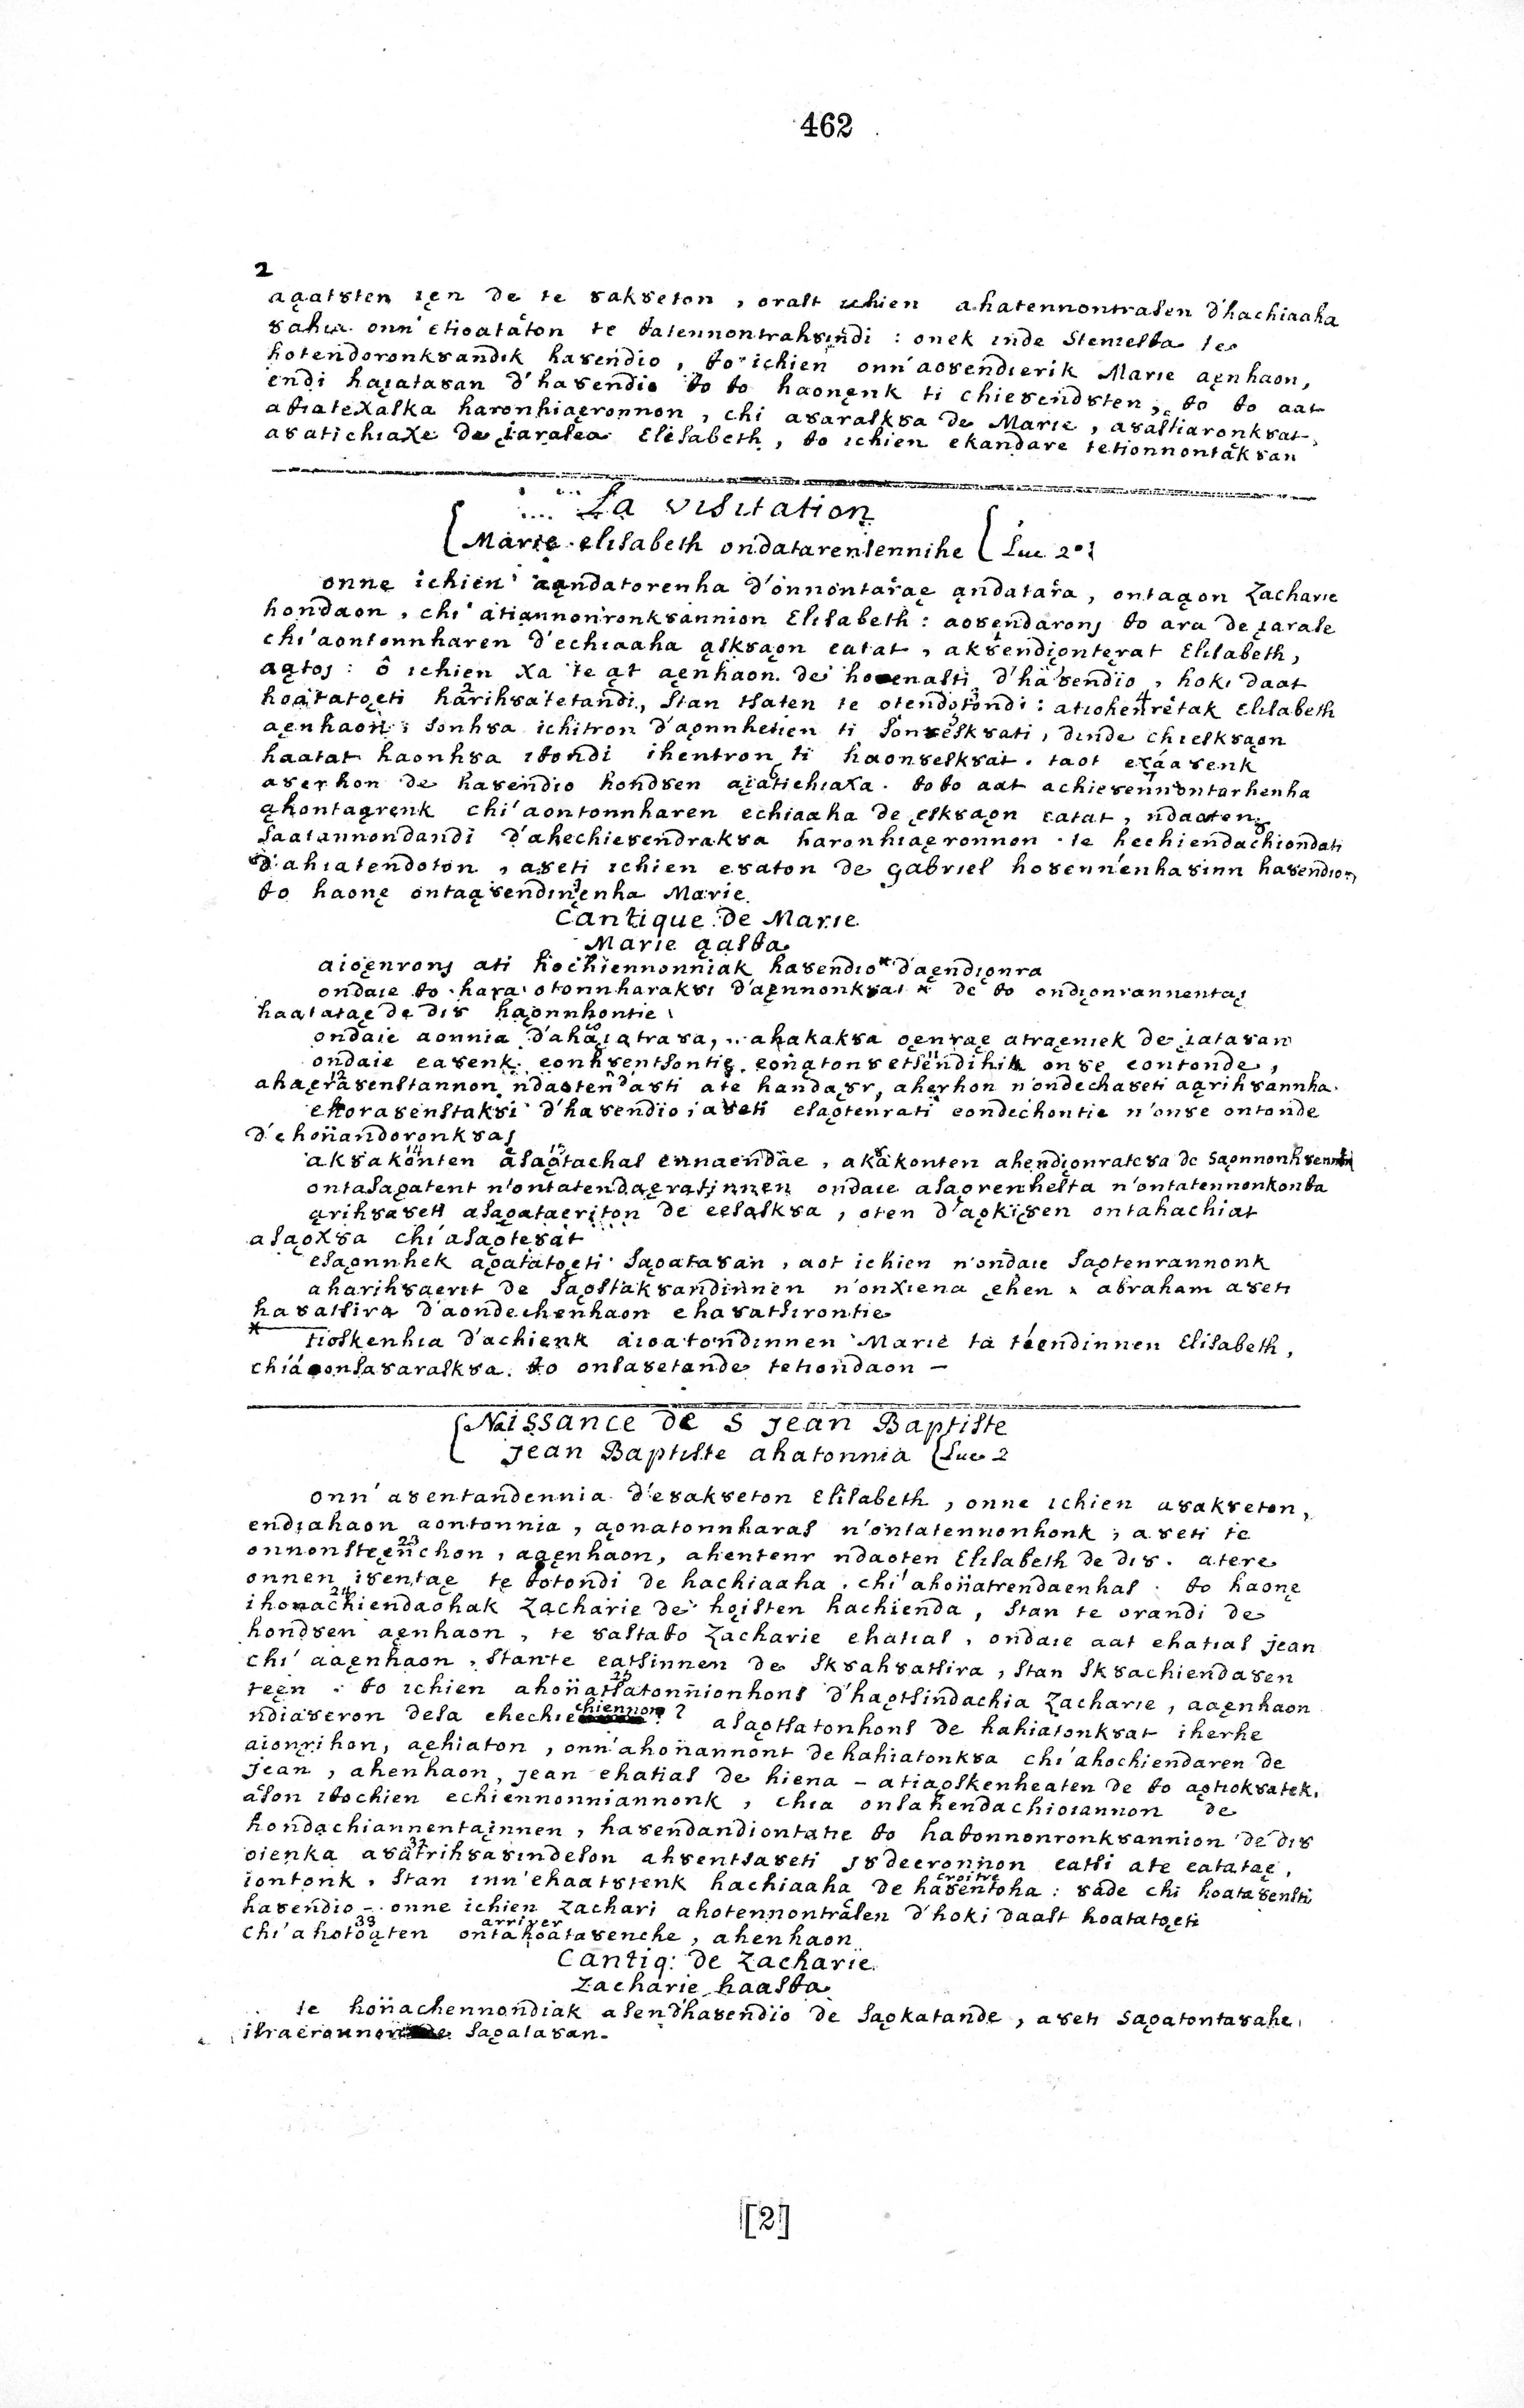 462
2
aąatsten ıęn de te ȣakȣeton, oralt ichien ahatennontralen d'hachiaaha
ȣahia onn'etioatáton te ꝋatennontrahȣindi : onek inde stenielꝋa te
hotendoronkȣandık haȣendio, ꝋo ichien onn'aoȣendıerik Marie aęnhaon,
endi haıataȣan d'haȣendio ꝋo ꝋo haonęnk ti chieȣendȣten, ꝋo ꝋo aat
aꝋiateXalka haronhiaęronnon, chi aȣaralkȣa de Marie, aȣaltiaronkȣat,
aȣatichıaXe de ıaralea Elisabeth, ꝋo ichien ekandare tetionnontąkȣan
La visitation
Marie elisabeth ondatarenlennihe Luc 2°
onne ichien aąndatorenha d'onnontarae ąndatara, ontaąon Zacharie
hondaon, chi'atiannonronkȣannion Elisabeth: aoȣendarons ꝋo ara de ıarale
chi'aontonnharen d'echiaaha ąlkȣaon eatat, akȣendionterat Elisabeth,
aątos: ô ichien Xa te ąt aęnhaon de hoȣenalti d'haȣendio, hokı daat
hoatatoęti harihȣatetandi, stan tsaten te otendotondi: atiohenretak Elisabeth
aęnhaon; sonhȣa ichitron d'aonnhetien ti sonȣelkȣati, dinde chielkȣaon
haatat haonhȣa itondi ihentron ti haonȣelkȣat. taot exaaȣenk
aȣerhon de haȣendio hondȣen aiatichiaXa. ꝋoꝋo aat achieȣennontarhenha
ąhontaąrenk chi'aontonnharen echiaaha de elkȣaon eatat, ndaoten
saatannondandi d'ahechieȣendrakȣa haronhiaeronnon. te hechiendachiondati
d'ahiatendoton, aȣeti ichien eȣaton de gabriel hoȣenn'enhaȣinn haȣendio,
ꝋo haonę ontaąȣendinenha Marie.
Cantique de Marie
Marie ąalꝋa
aioęnrons ati hochiennonniak haȣendio* d'aęndıonra
ondaie ꝋo hara otonnharakȣi d'aęnnonkȣat * de ꝋo ondıonrannentas
haatatae de diȣ haonnhontie
ondaie aonnia d'ahaıatraȣa, ahakakȣa oęnrae atraenıek de ıataȣan
ondaie eaȣenk eonhȣentsontie eonątonȣetsendihik onȣe eontonde,
ahaeraȣenstannon ndaoten d'aȣti ate handaȣr, aherhon n'ondechaȣeti aąrihȣannha
ekoraȣenstakȣi d'haȣendio; aȣeti esaotenrati eondechontie n'onȣe ontonde
d'e honandoronkȣas
akȣakonten asaotachas ennaendae, akakonten ahendionrateȣa de saonnonhȣennen
ontasaoatent n'ontatendaeratinnen ondaie asaorenhesta n'ontatennonkonꝋa
ąrihȣaȣeti asaoataeriton de eelalkȣa, oten d'aokiȣen ontahachiat
asaoXȣa chi'asaoteȣat
esaonnhek aoatatoeti saoataȣan, aot ichien n'ondaie saotenrannonk
aharihȣaerit de saostakȣandinnen n'onXiena ehen, abraham aȣeti
haȣatsira d'aondechenhaon ehaȣatsirontie
* tioskenhia d'achienk aioatondinnen Marie ta teendinnen Elisabeth,
chiaonsaȣaralkȣa. ꝋo onsaȣetande tetiondaon –
Naissance de S Jean Baptiste
Jean Baptiste ahatonnia Luc 2
onn'aȣentandennia d'eȣakȣeton Elisabeth, onne ichien aȣakȣeton,
endıahaon aontonnia, aonatonnharas n'ontatennonhonk; aȣeti te
onnonsteenchon, aaęnhaon, ahentenr ndaoten Elisabeth de diȣ. atere
onnen iȣentae te ꝋotondi de hachiaaha, chi'ahonatrendaenhas. ꝋo haonę
ihonachiendaohak Zacharie de hoisten hachienda, stan te orandi de
hondȣen aęnhaon, te ȣastaꝋo Zacharie ehatias, ondaie aat ehatias jean
chi'aaęnhaon, stante eatsinnen de skȣahȣatsira, stan skȣachiendaȣen
teen. ꝋo ichien ahonatsatonnionhons d'haotsindachia Zacharie, aaęnhaon
ndiaȣeron desa ehechiechiennon? asaotsatonhons de hahiatonkȣat iherhe
aionrihon, aehiaton, onn'ahonannont de hahiatonkȣa chi'ahochiendaren de
Jean, ahenhaon, jean ehatias de hiena – atiaoskenheaten de ꝋo aotiokȣatek.
ason iꝋochien echiennonniannonk, chia onsahendachioiannon de
hondachiannentainnen, haȣendandiontatie ꝋo haꝋonnonronkȣannion de diȣ
oienka aȣatrihȣaȣindeson ahȣentsaȣeti jȣdeeronnon eatsi ate eatatae,
iontonk, stan inn'ehaatstenk hachiaaha de haȣentoha croitre: ȣade chi hoataȣensti
haȣendio – onne ichien Zachari ahotennontralen d'hoki daast hoatatoeti
chi'ahotoaten ontahoataȣenche arriver, ahenhaon
Cantiq: de Zacharie
Zacharie haasꝋa
te honachennondiak asend'haȣendio de saokatande, aȣeti saoatontaȣahe
israeronnon saoataȣan.
[2]